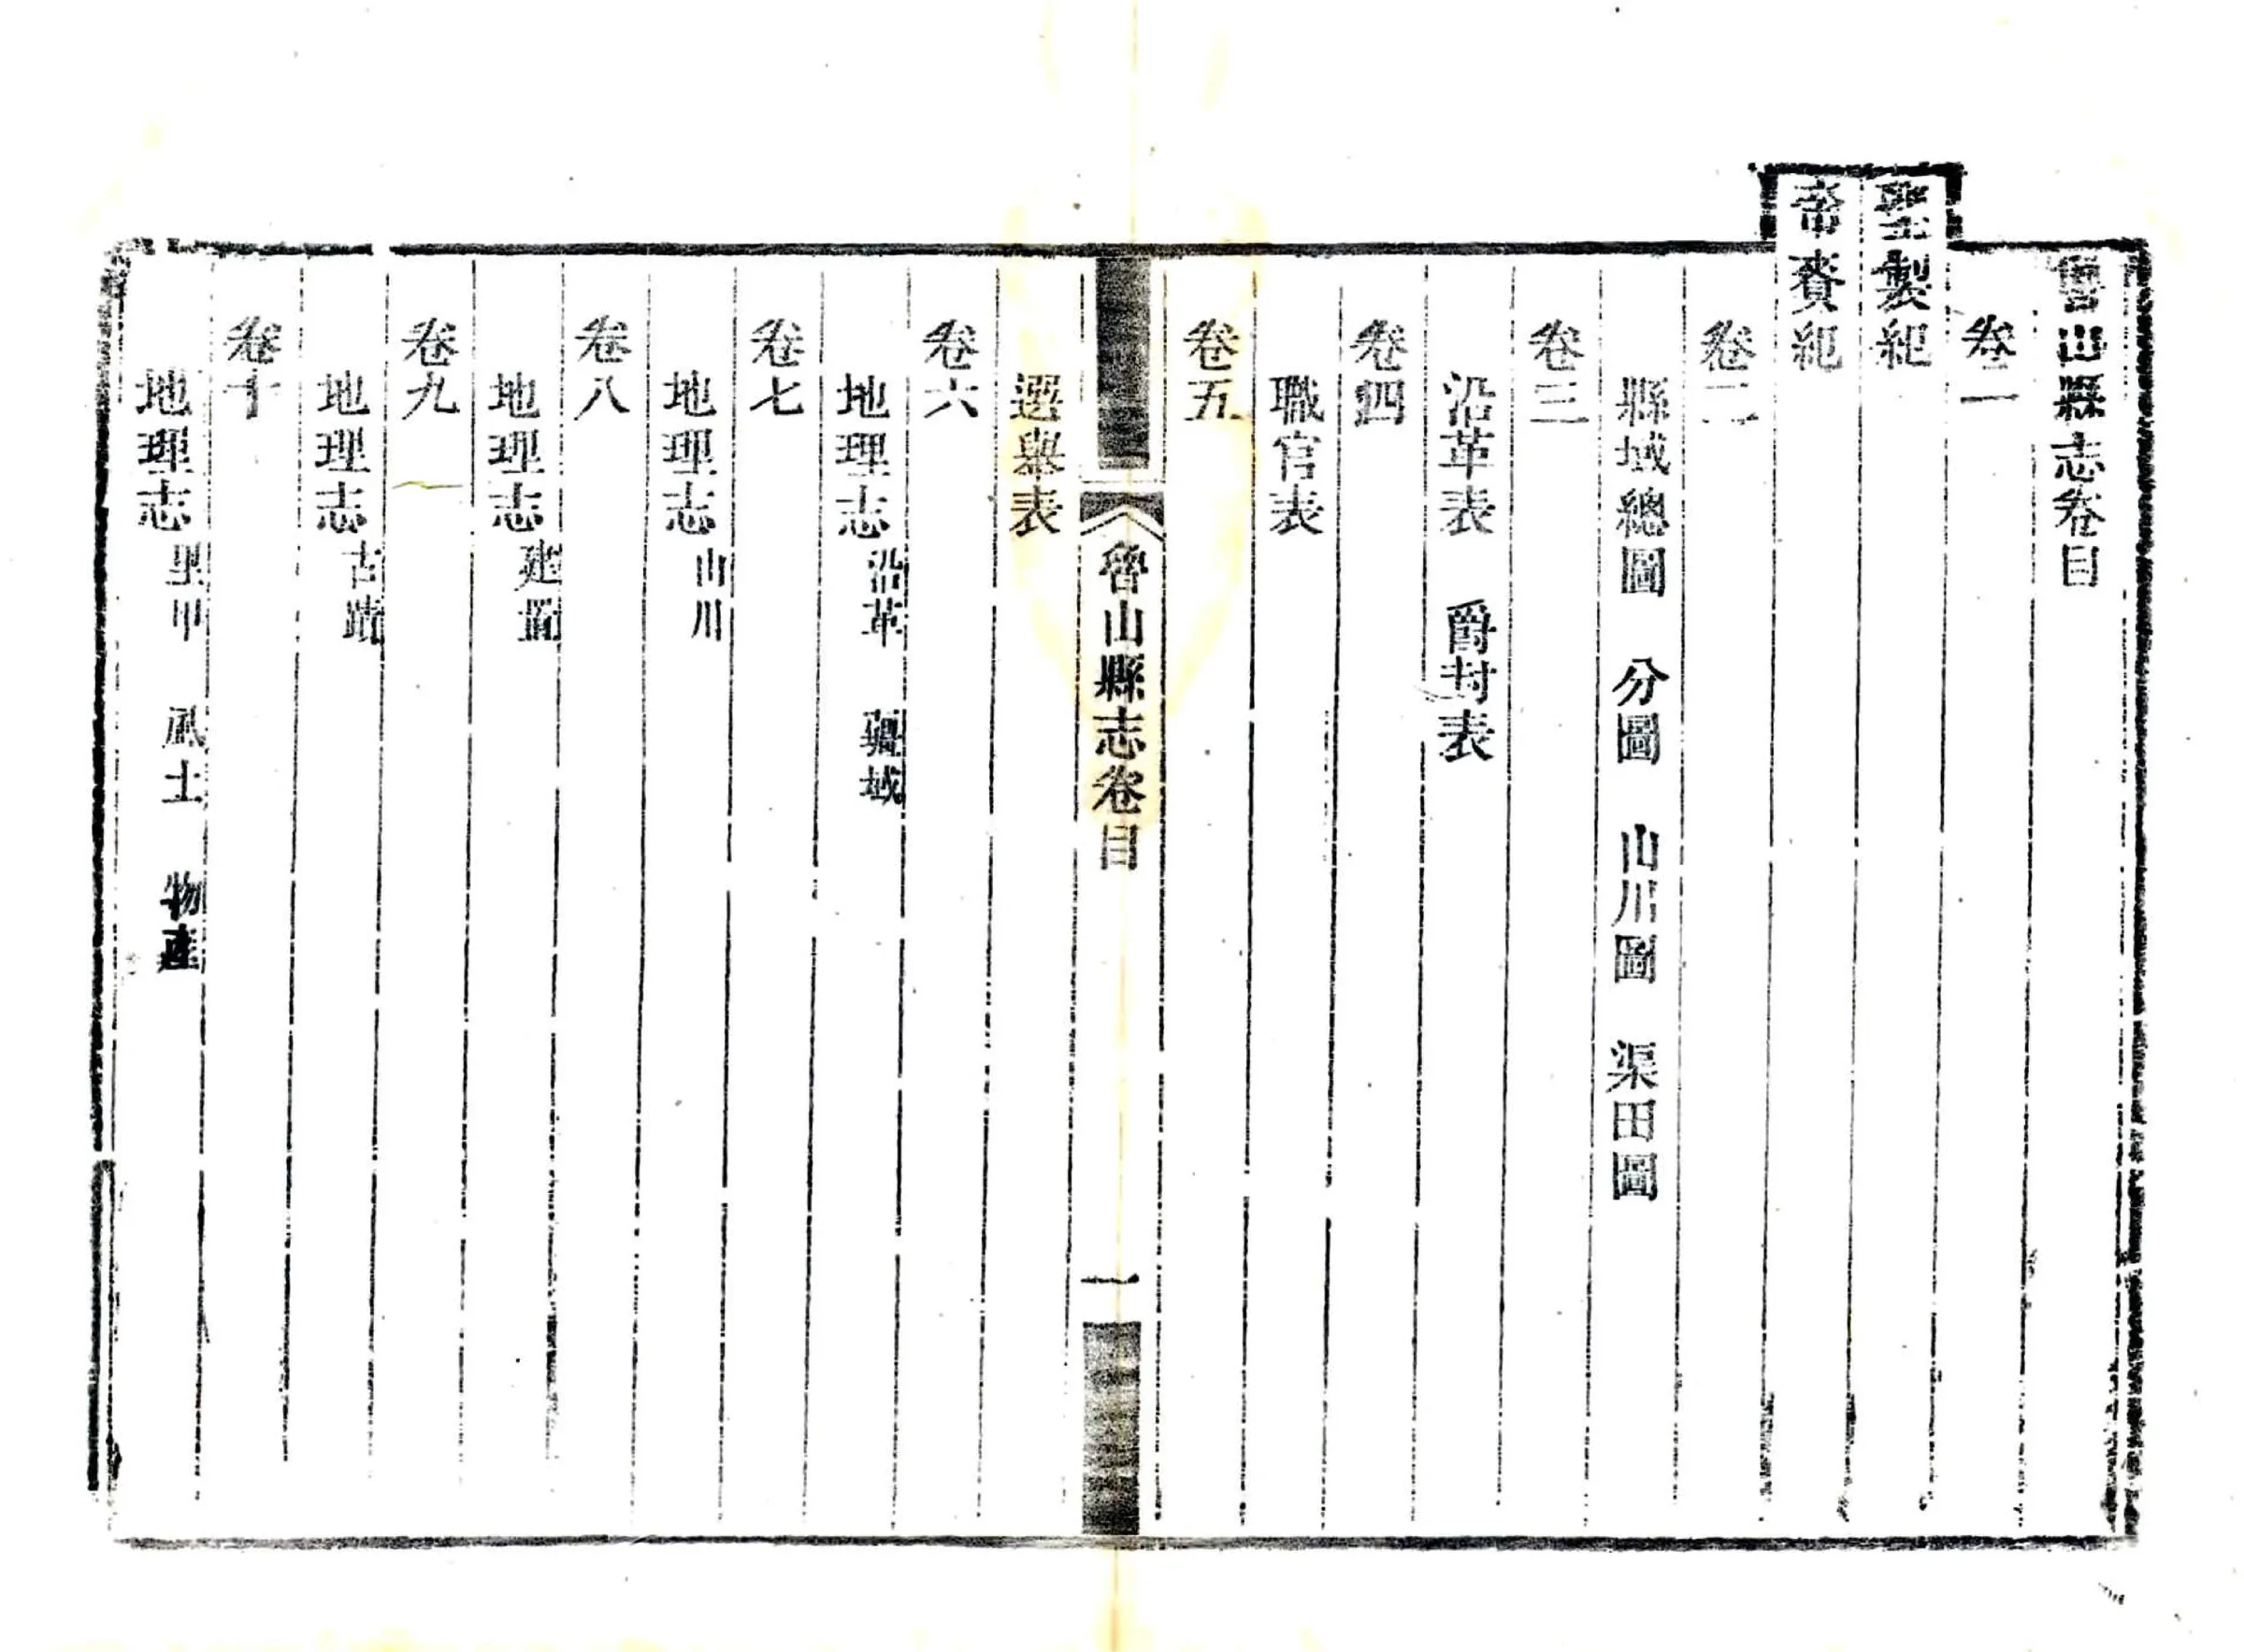 魯山縣志卷目
卷一
聖製紀
帝賚紀
卷二
縣域總圖　分圖　山川圖　渠田圖
卷三
沿革表　爵封表
卷四
職官表
卷五
魯山縣志卷目
一
選舉表
卷六
地理志 沿革　疆域
卷七
地理志 山川
卷八
地理志 建置
卷九
地理志 古蹟
卷十
地理志 里甲　風土　物產